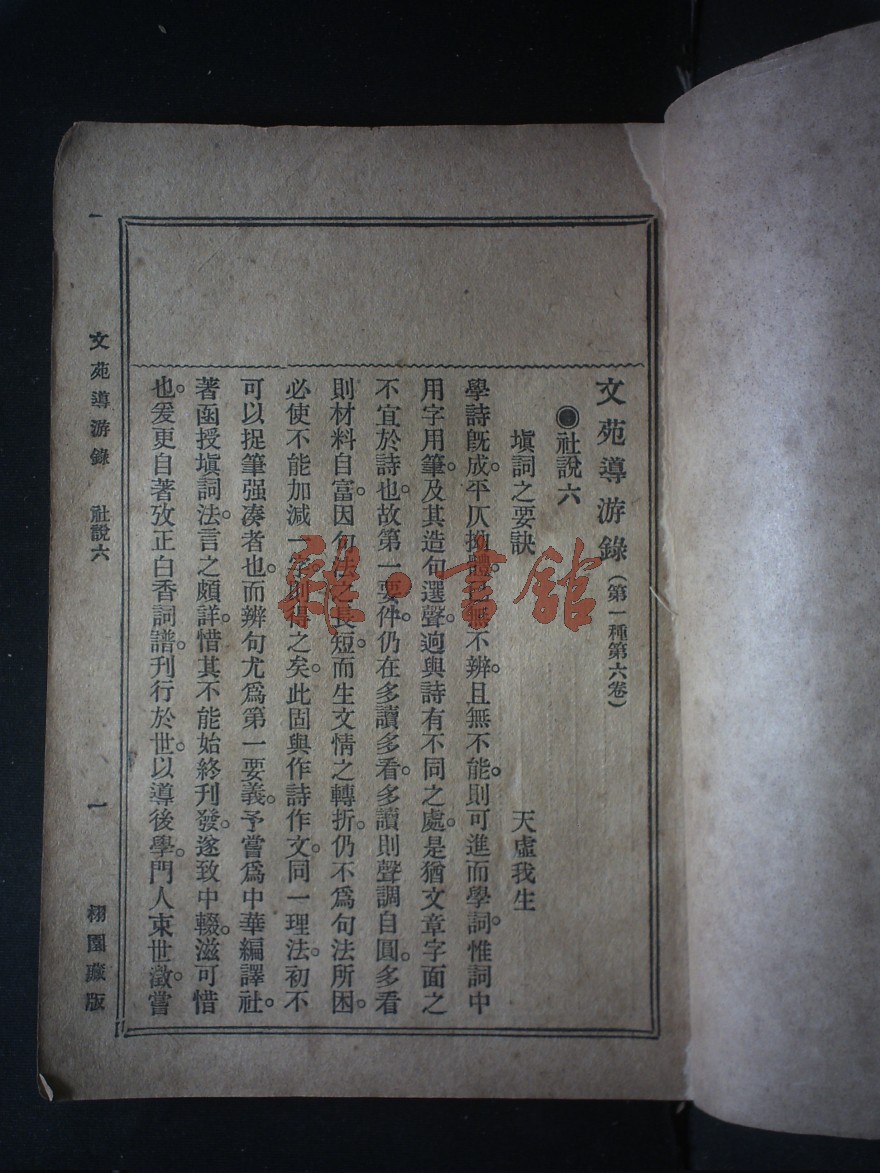 文苑導游錄（第一種第六卷）
社說六
塡詞之要訣 天虛我生
學詩旣成。平仄拗體。已無不辨。且無不能。則可進而學詞。惟詞中
用字用筆。及其造句選聲。迥與詩有不同之處。是猶文章字面之
不宜於詩也。故第一要件。仍在多讀多看。多讀則聲調自圓。多看
則材料自富。因句法之長短。而生文情之轉折。仍不爲句法所困。
必使不能加減一字。則得之矣。此固與作詩作文。同一理法。初不
可以捉筆强凑者也。而辨句尤爲第一要義。予嘗爲中華編譯社。
著函授塡詞法。言之頗詳。惜其不能始終刊發。遂致中輟。滋可惜
也。爰更自著攷正白香詞譜。刊行於世。以導後學。門人束世澂。嘗
一
文苑導游錄 社說六 一 栩園藏版
雜·書館